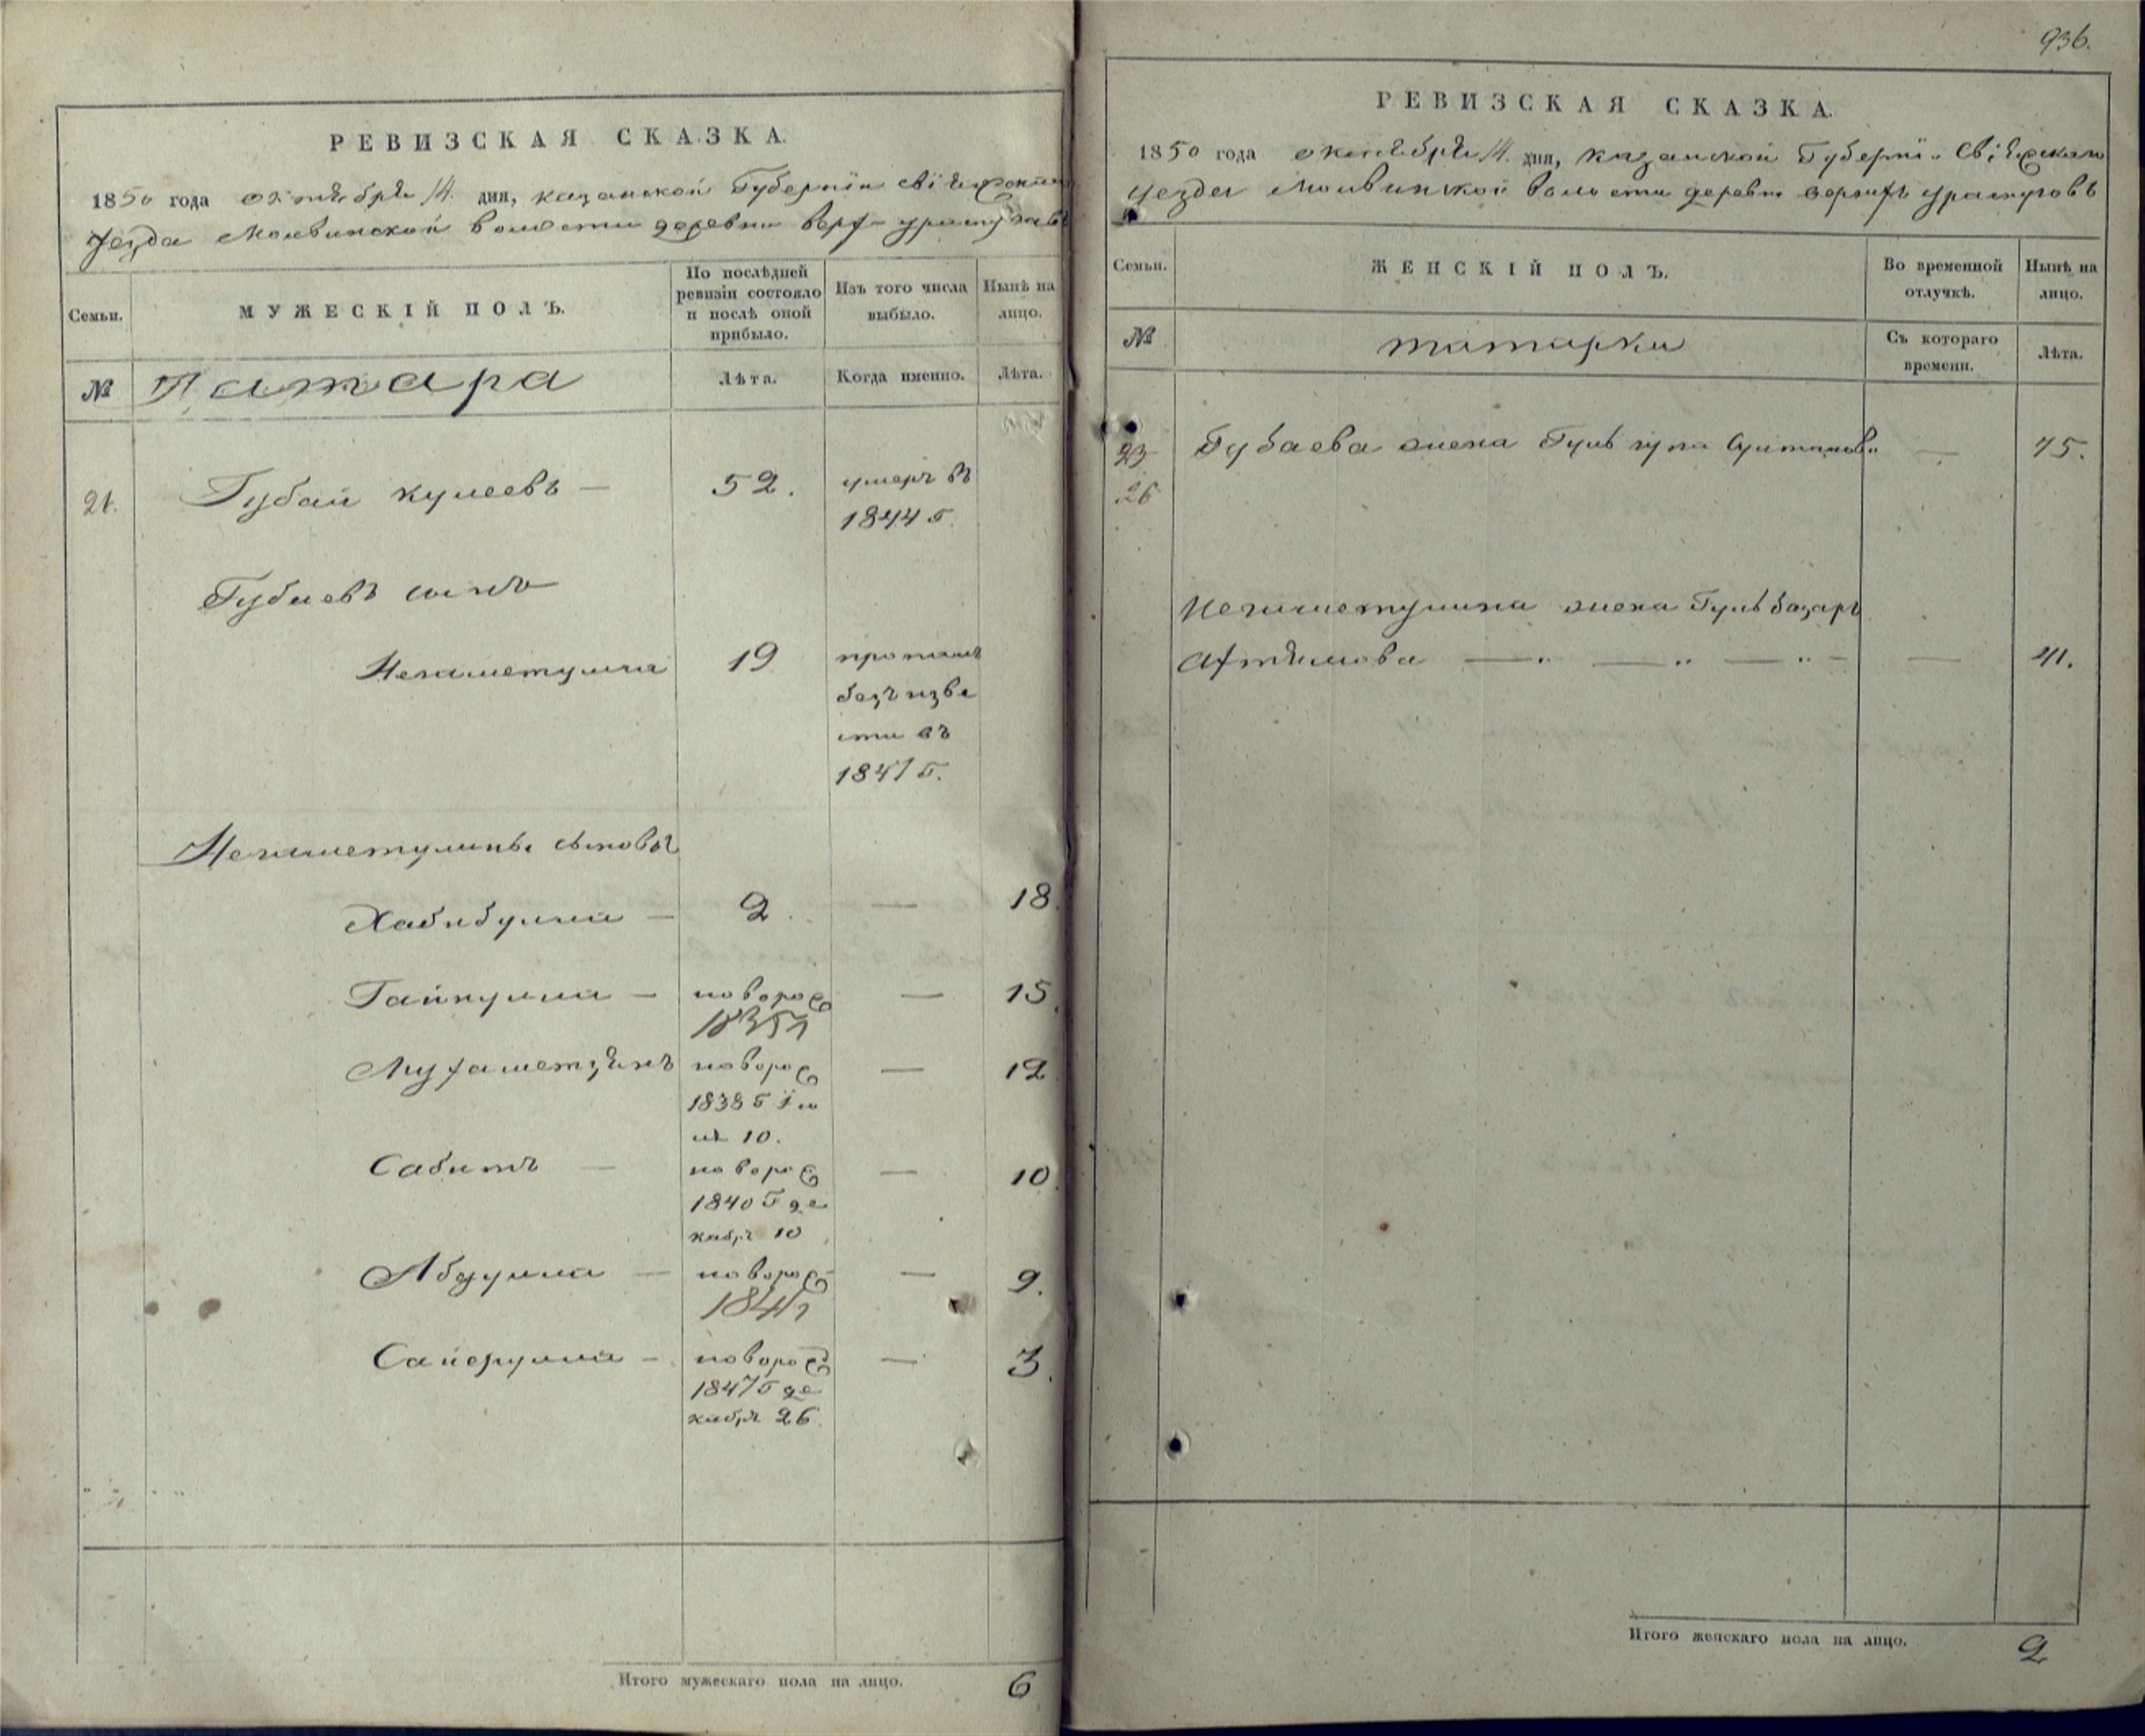 936.
РЕВИЗСКАЯ СКАЗКА.
1850 года октября 14. дня, казанской Губернии свіяжскаго
уезда Молвинской волости деревни верх ураспугавъ
Семьи.
МУЖЕСКІЙ ПОЛЪ.
По послѣдней ревизіи состояло и послѣ оной прибыло.
Изъ того числа выбыло.
Нынѣ на лицо.
№
Татара
Лѣта.
Когда именно.
Лѣта.
21. Губай кулеевъ — 52. умеръ въ
1844 г.
Губаевъ сынъ
Негаметулла 19 пропалъ
безъ изве
сти въ
1841 г.
Негаметуллины сыновья
Хабибулла — 2. — 18.
Гайнулла — новорож — 15.
1835
Мухаметзянъ новорож — 12
1838 г Ію
ля 10.
Сабитъ — новорож — 10.
1840 г де
кабря 10
Абдулла — новорож — 9.
1841
— новорож — 3.
1847 г де
кабря 26
Итого мужескаго пола на лицо. 6
РЕВИЗСКАЯ СКАЗКА.
1850 года октября 14. дня, казанской Губерніи Свіяжскаго
уезда Молвинской волости деревни верхнихъ
Семьи.
ЖЕНСКІЙ ПОЛЪ.
Во временной отлучкѣ.
Нынѣ на лицо.
№
татарки
Съ котораго времени.
Лѣта.
23 Губаева жена Гуль — 75.
26
Негаметуллина жена Гульбазаръ
— — — — 41.
Итого женскаго пола на лицо. 2